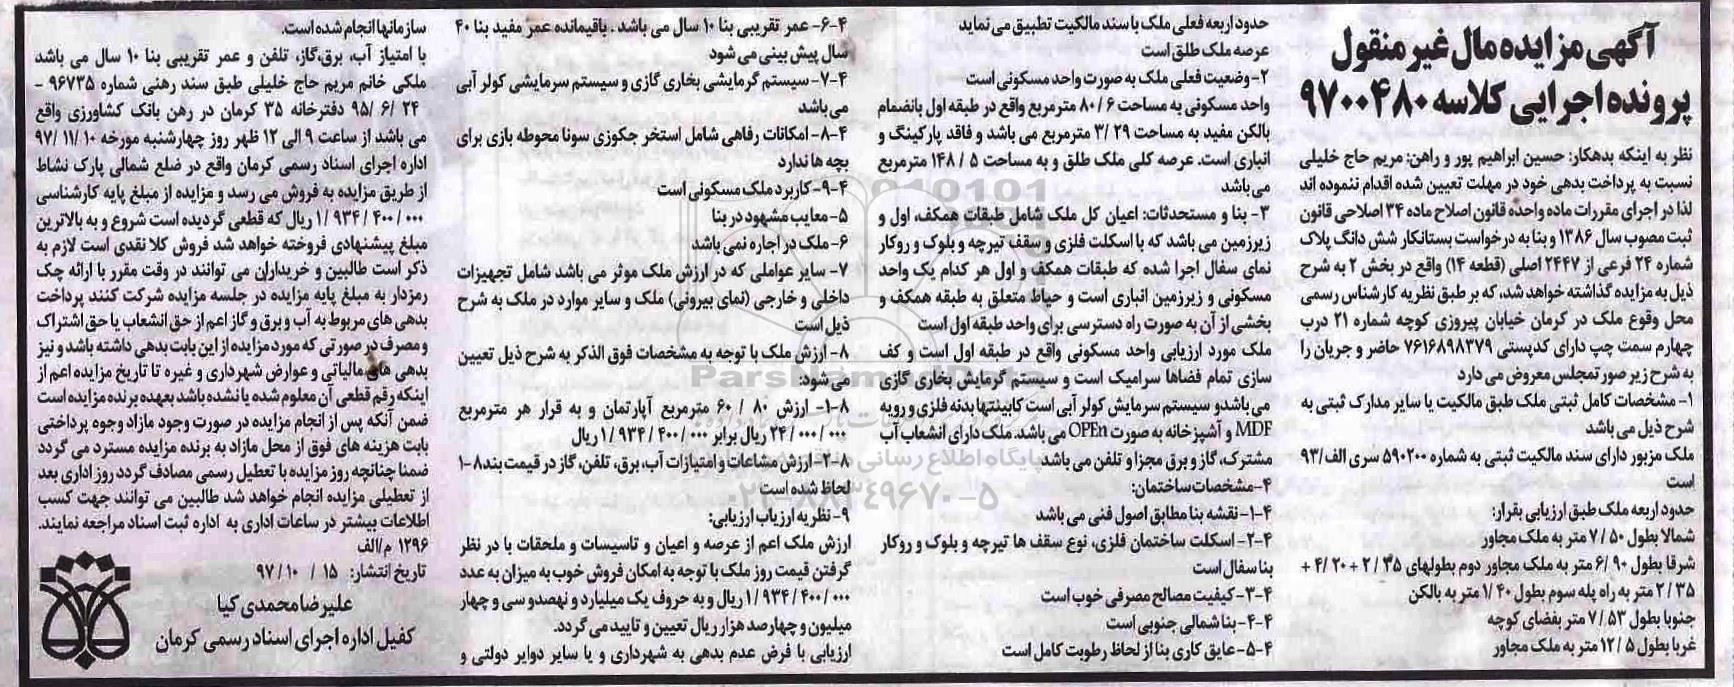 آگهی مزایده مال غیر منقول
پرونده اجرایی کلاسه ۹۷۰۰۴۸۰
نظر به اینکه بدهکار: حسین ابراهیم پور و راهن: مریم حاج خلیلی
نسبت به پرداخت بدهی خود در مهلت تعیین شده اقدام ننموده اند
لذا در اجرای مقررات ماده واحده قانون اصلاح ماده ۳۴ اصلاحی قانون
ثبت مصوب سال ۱۳۸۶ و بنا به درخواست بستانکار شش دانگ پلاک
شماره ۲۴ فرعی از ۲۴۴۷ اصلی (قطعه ۱۴) واقع در بخش ۲ به شرح
ذیل به مزایده گذاشته خواهد شد، که بر طبق نظریه کارشناس رسمی
محل وقوع ملک در کرمان خیابان پیروزی کوچه شماره ۲۱ درب
چهارم سمت چپ دارای کدپستی ۷۶۱۶۸۹۸۳۷۹ حاضر و جریان را
به شرح زیر صورتمجلس معروض می دارد
۱- مشخصات کامل ثبتی ملک طبق مالکیت یا سایر مدارک ثبتی به
شرح ذیل می باشد
ملک مزبور دارای سند مالکیت ثبتی به شماره ۵۹۰۲۰۰ سری الف/۹۳
است
حدود اربعه ملک طبق ارزیابی بقرار:
شمالا بطول ۵۰ / ۷ متر به ملک مجاور
شرقا بطول ۹۰ /۶ متر به ملک مجاور دوم بطولهای ۳۵ / ۲ + ۲۰ /۴ +
۳۵ / ۲ متر به راه پله سوم بطول ۴۰ /۱ متر به بالکن
جنوبا بطول ۵۳ / ۷ متر بفضای کوچه
غربا بطول ۵ / ۱۲ متر به ملک مجاور
حدود اربعه فعلی ملک با سند مالکیت تطبیق می نماید
عرصه ملک طلق است
۲- وضعیت فعلی ملک به صورت واحد مسکونی است
واحد مسکونی به مساحت ۶ / ۸۰ مترمربع واقع در طبقه اول بانضمام
بالکن مفید به مساحت ۲۹ /۳ مترمربع می باشد و فاقد پارکینگ و
انباری است. عرصه کلی ملک طلق و به مساحت ۵ / ۱۴۸ مترمربع
می باشد
۳- بنا و مستحدثات: اعیان کل ملک شامل طبقات همکف، اول و
زیرزمین می باشد که با اسکلت فلزی و سقف تیرچه و بلوک و روکار
نمای سفال اجرا شده که طبقات همکف و اول هر کدام یک واحد
مسکونی و زیرزمین انباری است و حیاط متعلق به طبقه همکف و
بخشی از آن به صورت راه دسترسی برای واحد طبقه اول است
ملک مورد ارزیابی واحد مسکونی واقع در طبقه اول است و کف
سازی تمام فضاها سرامیک است و سیستم گرمایش بخاری گازی
می باشد و سیستم سرمایش کولر آبی است کابینتها بدنه فلزی و رویه
MDF و آشپزخانه به صورت OPEn می باشد. ملک دارای انشعاب آب
مشترک، گاز و برق مجزا و تلفن می باشد
۴- مشخصات ساختمان:
۱-۴- نقشه بنا مطابق اصول فنی می باشد
۲-۴- اسکلت ساختمان فلزی، نوع سقف ها تیرچه و بلوک و روکار
بنا سفال است
۳-۴- کیفیت مصالح مصرفی خوب است
۴-۴- بنا شمالی جنوبی است
۵-۴- عایق کاری بنا از لحاظ رطوبت کامل است
۶-۴- عمر تقریبی بنا ۱۰ سال می باشد . باقیمانده عمر مفید بنا ۴۰
سال پیش بینی می شود
۷-۴- سیستم گرمایشی بخاری گازی و سیستم سرمایشی کولر آبی
می باشد
۸-۴- امکانات رفاهی شامل استخر جکوزی سونا محوطه بازی برای
بچه ها ندارد
۹-۴- کاربرد ملک مسکونی است
۵- معایب مشهود در بنا
۶- ملک در اجاره نمی باشد
۷- سایر عواملی که در ارزش ملک موثر می باشد شامل تجهیزات
داخلی و خارجی (نمای بیرونی) ملک و سایر موارد در ملک به شرح
ذیل است
۸- ارزش ملک با توجه به مشخصات فوق الذکر به شرح ذیل تعیین
می شود:
۱-۸- ارزش ۸۰ / ۶۰ مترمربع آپارتمان و به قرار هر مترمربع
۰۰۰/ ۰۰۰/ ۲۴ ریال برابر ۰۰۰/ ۴۰۰/ ۹۳۴/ ۱ ریال
۲-۸- ارزش مشاعات و امتیازات آب، برق، تلفن، گاز در قیمت بند ۸-۱
لحاظ شده است
۹- نظریه ارزیاب ارزیابی:
ارزش ملک اعم از عرصه و اعیان و تاسیسات و ملحقات با در نظر
گرفتن قیمت روز ملک با توجه به امکان فروش خوب به میزان به عدد
۰۰۰/ ۴۰۰/ ۹۳۴/ ۱ ریال و به حروف یک میلیارد و نهصدو سی و چهار
میلیون و چهارصد هزار ریال تعیین و تایید می گردد.
ارزیابی با فرض عدم بدهی به شهرداری و یا سایر دوایر دولتی و
سازمانها انجام شده است.
با امتیاز آب، برق،گاز، تلفن و عمر تقریبی بنا ۱۰ سال می باشد
ملکی خانم مریم حاج خلیلی طبق سند رهنی شماره ۹۶۷۳۵ -
۲۴ /۶ /۹۵ دفترخانه ۳۵ کرمان در رهن بانک کشاورزی واقع
می باشد از ساعت ۹ الی ۱۲ ظهر روز چهارشنبه مورخه ۱۰ /۱۱ /۹۷
اداره اجرای اسناد رسمی کرمان واقع در ضلع شمالی پارک نشاط
از طریق مزایده به فروش می رسد و مزایده از مبلغ پایه کارشناسی
۰۰۰/ ۴۰۰/ ۹۳۴/ ۱ ریال که قطعی گردیده است شروع و به بالاترین
مبلغ پیشنهادی فروخته خواهد شد فروش کلا نقدی است لازم به
ذکر است طالبین و خریداران می توانند در وقت مقرر با ارائه چک
رمزدار به مبلغ پایه مزایده در جلسه مزایده شرکت کنند پرداخت
بدهی های مربوط به آب و برق و گاز اعم از حق انشعاب یا حق اشتراک
و مصرف در صورتی که مورد مزایده از این بابت بدهی داشته باشد و نیز
بدهی های مالیاتی و عوارض شهرداری و غیره تا تاریخ مزایده اعم از
اینکه رقم قطعی آن معلوم شده یا نشده باشد بعهده برنده مزایده است
ضمن آنکه پس از انجام مزایده در صورت وجود مازاد وجوه پرداختی
بابت هزینه های فوق از محل مازاد به برنده مزایده مسترد می گردد
ضمنا چنانچه روز مزایده با تعطیل رسمی مصادف گردد روز اداری بعد
از تعطیلی مزایده انجام خواهد شد طالبین می توانند جهت کسب
اطلاعات بیشتر در ساعات اداری به اداره ثبت اسناد مراجعه نمایند.
۱۲۹۶ م/الف
تاریخ انتشار: ۱۵ / ۱۰ / ۹۷
علیرضا محمدی کیا
کفیل اداره اجرای اسناد رسمی کرمان
ParsNamadData
پایگاه اطلاع رسانی
۰۲۱-۸۸۳۴۹۶۷۰-۵